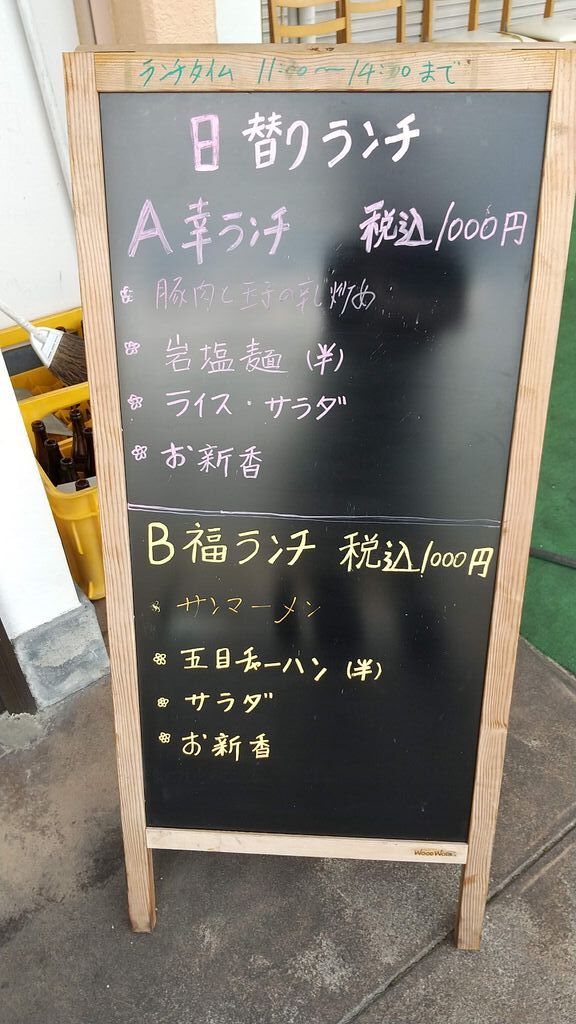 ランチタイム 11:00〜14:00まで
日替りランチ
A 幸ランチ 税込1000円
豚肉と玉子の辛し炒め
岩塩麺 (半)
ライス・サラダ
お新香
B 福ランチ 税込1000円
サンマーメン
五目チャーハン (半)
サラダ
お新香